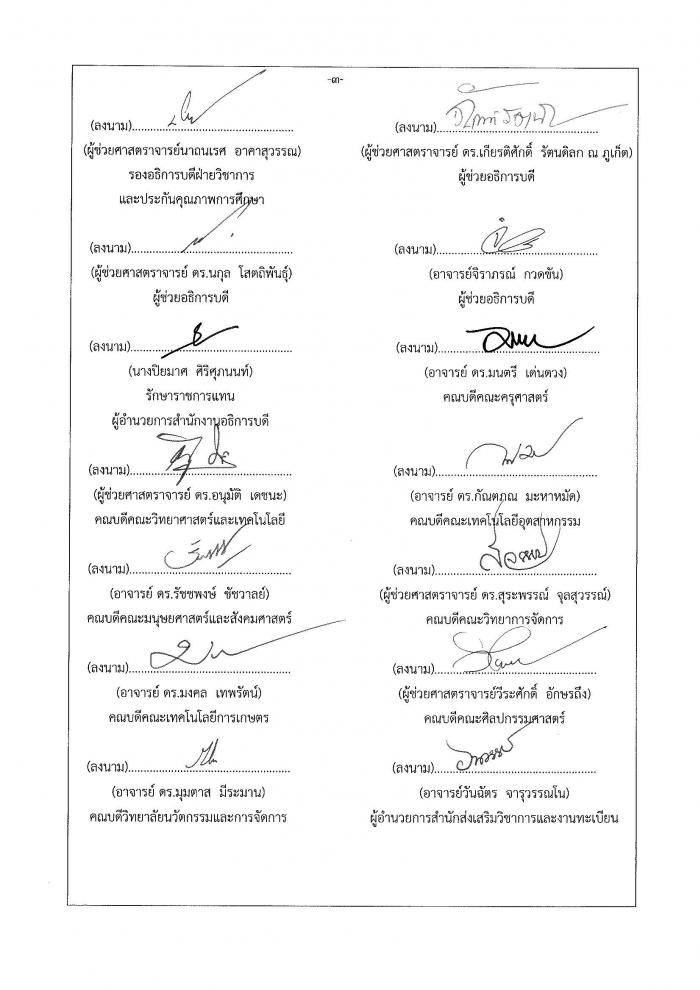 -๓-
(ลงนาม)
(ผู้ช่วยศาสตราจารย์นาถนเรศ อาคาสุวรรณ)
รองอธิการบดีฝ่ายวิชาการ
และประกันคุณภาพการศึกษา
(ลงนาม)
(ผู้ช่วยศาสตราจารย์ ดร.เกียรติศักดิ์ รัตนดิลก ณ ภูเก็ต)
ผู้ช่วยอธิการบดี
(ลงนาม)
(ผู้ช่วยศาสตราจารย์ ดร.นกุล โสตถิพันธุ์)
ผู้ช่วยอธิการบดี
(ลงนาม)
(อาจารย์จิราภรณ์ กวดขัน)
ผู้ช่วยอธิการบดี
(ลงนาม)
(นางปิยมาศ ศิริศุภนนท์)
รักษาราชการแทน
ผู้อำนวยการสำนักงานอธิการบดี
(ลงนาม)
(อาจารย์ ดร.มนตรี เด่นดวง)
คณบดีคณะครุศาสตร์
(ลงนาม)
(ผู้ช่วยศาสตราจารย์ ดร.อนุมัติ เดชนะ)
คณบดีคณะวิทยาศาสตร์และเทคโนโลยี
(ลงนาม)
(อาจารย์ ดร.กัณตภณ มะหาหมัด)
คณบดีคณะเทคโนโลยีอุตสาหกรรม
(ลงนาม)
(อาจารย์ ดร.รัชชพงษ์ ชัชวาลย์)
คณบดีคณะมนุษยศาสตร์และสังคมศาสตร์
(ลงนาม)
(ผู้ช่วยศาสตราจารย์ ดร.สุระพรรณ์ จุลสุวรรณ์)
คณบดีคณะวิทยาการจัดการ
(ลงนาม)
(อาจารย์ ดร.มงคล เทพรัตน์)
คณบดีคณะเทคโนโลยีการเกษตร
(ลงนาม)
(ผู้ช่วยศาสตราจารย์วีระศักดิ์ อักษรถึง)
คณบดีคณะศิลปกรรมศาสตร์
(ลงนาม)
(อาจารย์ ดร.มุมตาส มีระมาน)
คณบดีวิทยาลัยนวัตกรรมและการจัดการ
(ลงนาม)
(อาจารย์วันฉัตร จารุวรรณโน)
ผู้อำนวยการสำนักส่งเสริมวิชาการและงานทะเบียน